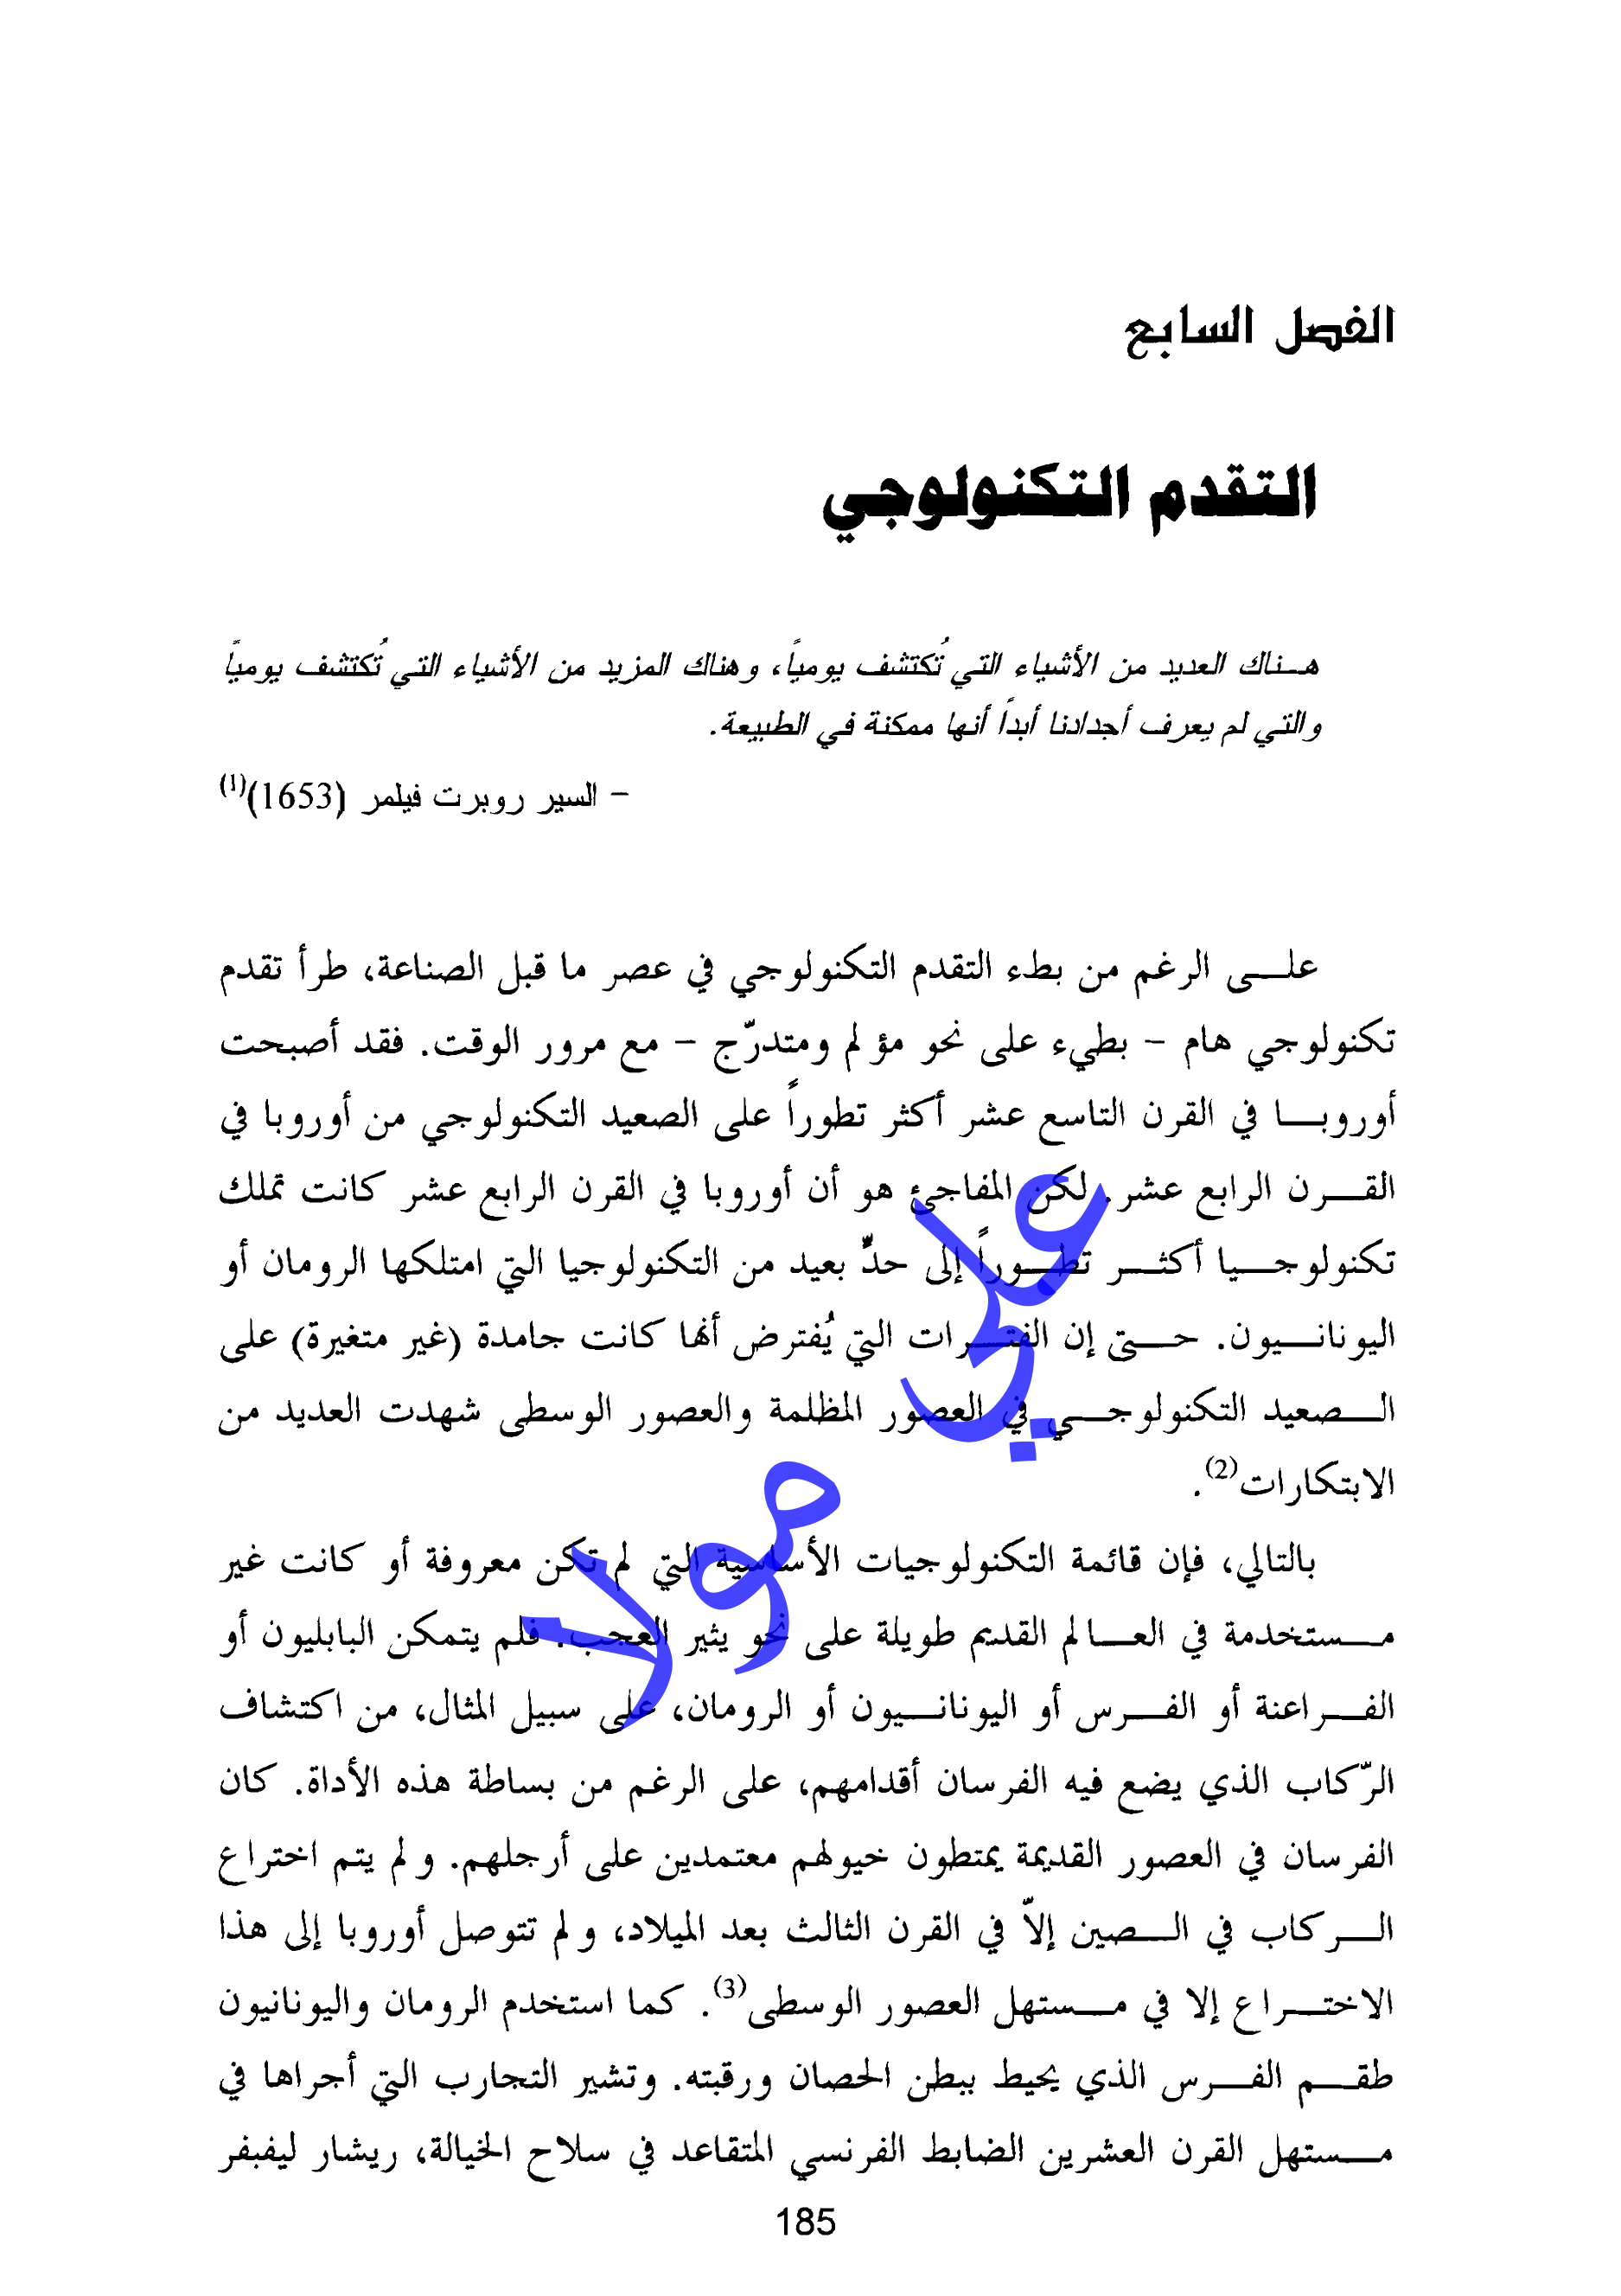 الفصل السابع
التقدم التكنولوجي
هناك العديد من الأشياء التي تُكتشف يومياً، وهناك المزيد من الأشياء التي تُكتشف يومياً
والتي لم يعرف أجدادنا أبداً أنها ممكنة في الطبيعة.
– السير روبرت فيلمر (1653)(1)
على الرغم من بطء التقدم التكنولوجي في عصر ما قبل الصناعة، طرأ تقدم
تكنولوجي هام – بطيء على نحو مؤلم ومتدرّج – مع مرور الوقت. فقد أصبحت
أوروبا في القرن التاسع عشر أكثر تطوراً على الصعيد التكنولوجي من أوروبا في
القرن الرابع عشر. لكن المفاجئ هو أن أوروبا في القرن الرابع عشر كانت تملك
تكنولوجيا أكثر تطوراً إلى حدٍّ بعيد من التكنولوجيا التي امتلكها الرومان أو
اليونانيون. حتى إن الفترات التي يُفترض أنها كانت جامدة (غير متغيرة) على
الصعيد التكنولوجي في العصور المظلمة والعصور الوسطى شهدت العديد من
الابتكارات(2).
بالتالي، فإن قائمة التكنولوجيات الأساسية التي لم تكن معروفة أو كانت غير
مستخدمة في العالم القديم طويلة على نحو يثير العجب. فلم يتمكن البابليون أو
الفراعنة أو الفرس أو اليونانيون أو الرومان، على سبيل المثال، من اكتشاف
الرّكاب الذي يضع فيه الفرسان أقدامهم، على الرغم من بساطة هذه الأداة. كان
الفرسان في العصور القديمة يمتطون خيولهم معتمدين على أرجلهم. ولم يتم اختراع
الركاب في الصين إلاّ في القرن الثالث بعد الميلاد، ولم تتوصل أوروبا إلى هذا
الاختراع إلا في مستهل العصور الوسطى(3). كما استخدم الرومان واليونانيون
طقم الفرس الذي يحيط ببطن الحصان ورقبته. وتشير التجارب التي أجراها في
مستهل القرن العشرين الضابط الفرنسي المتقاعد في سلاح الخيالة، ريشار ليفبفر
185
علي مولا